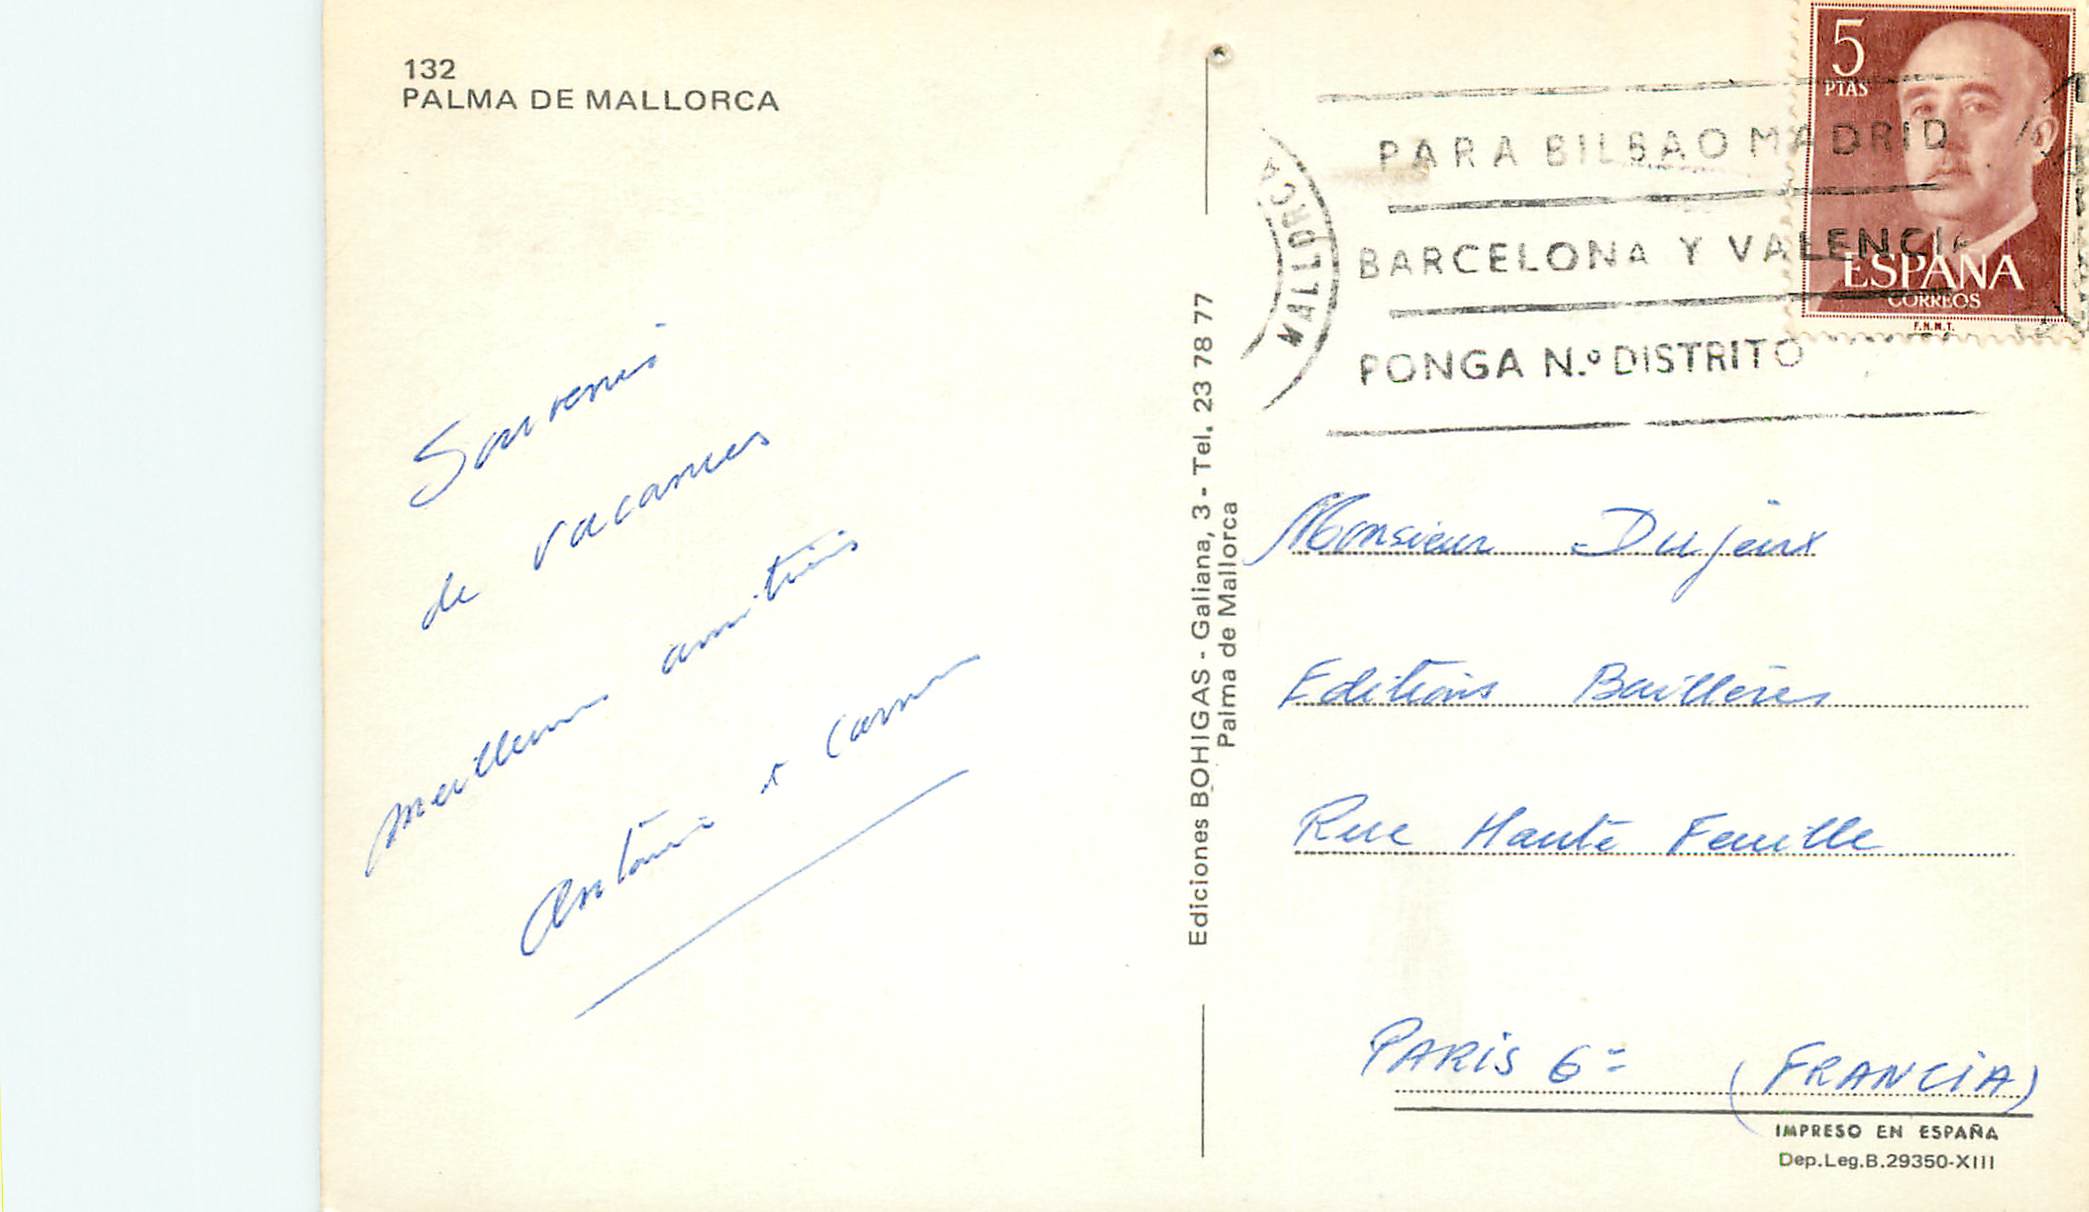 132
PALMA DE MALLORCA
Souvenirs
de vacances
meilleures amitiés
Antoni et
Ediciones BOHIGAS - Galiana, 3 - Tel. 23 78 77
Palma de Mallorca
MALLORCA
PARA BILBAO MADRID
BARCELONA Y VALENCIA
PONGA N.º DISTRITO
5
PTAS
ESPAÑA
CORREOS
F.N.M.T.
Monsieur Dujeux
Editions Baillères
Rue Haute Feuille
PARIS 6e (FRANCIA)
IMPRESO EN ESPAÑA
Dep.Leg.B.29350-XIII